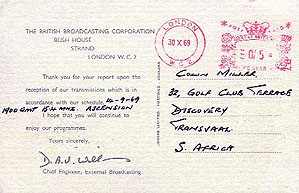 THE BRITISH BROADCASTING CORPORATION
BUSH HOUSE
STRAND
LONDON W.C.2
Thank you for your report upon the
reception of our transmissions which is in
accordance with our schedule 14-9-69
1900 GMT 15 MHz. ASCENSION
I hope that you will continue to
enjoy our programmes.
Yours sincerely,
Chief Engineer, External Broadcasting.
LONDON
30 X 69
W.C.
0/5
COLIN MILLER
32, GOLF CLUB TERRACE
DISCOVERY
TRANSVAAL
S. AFRICA